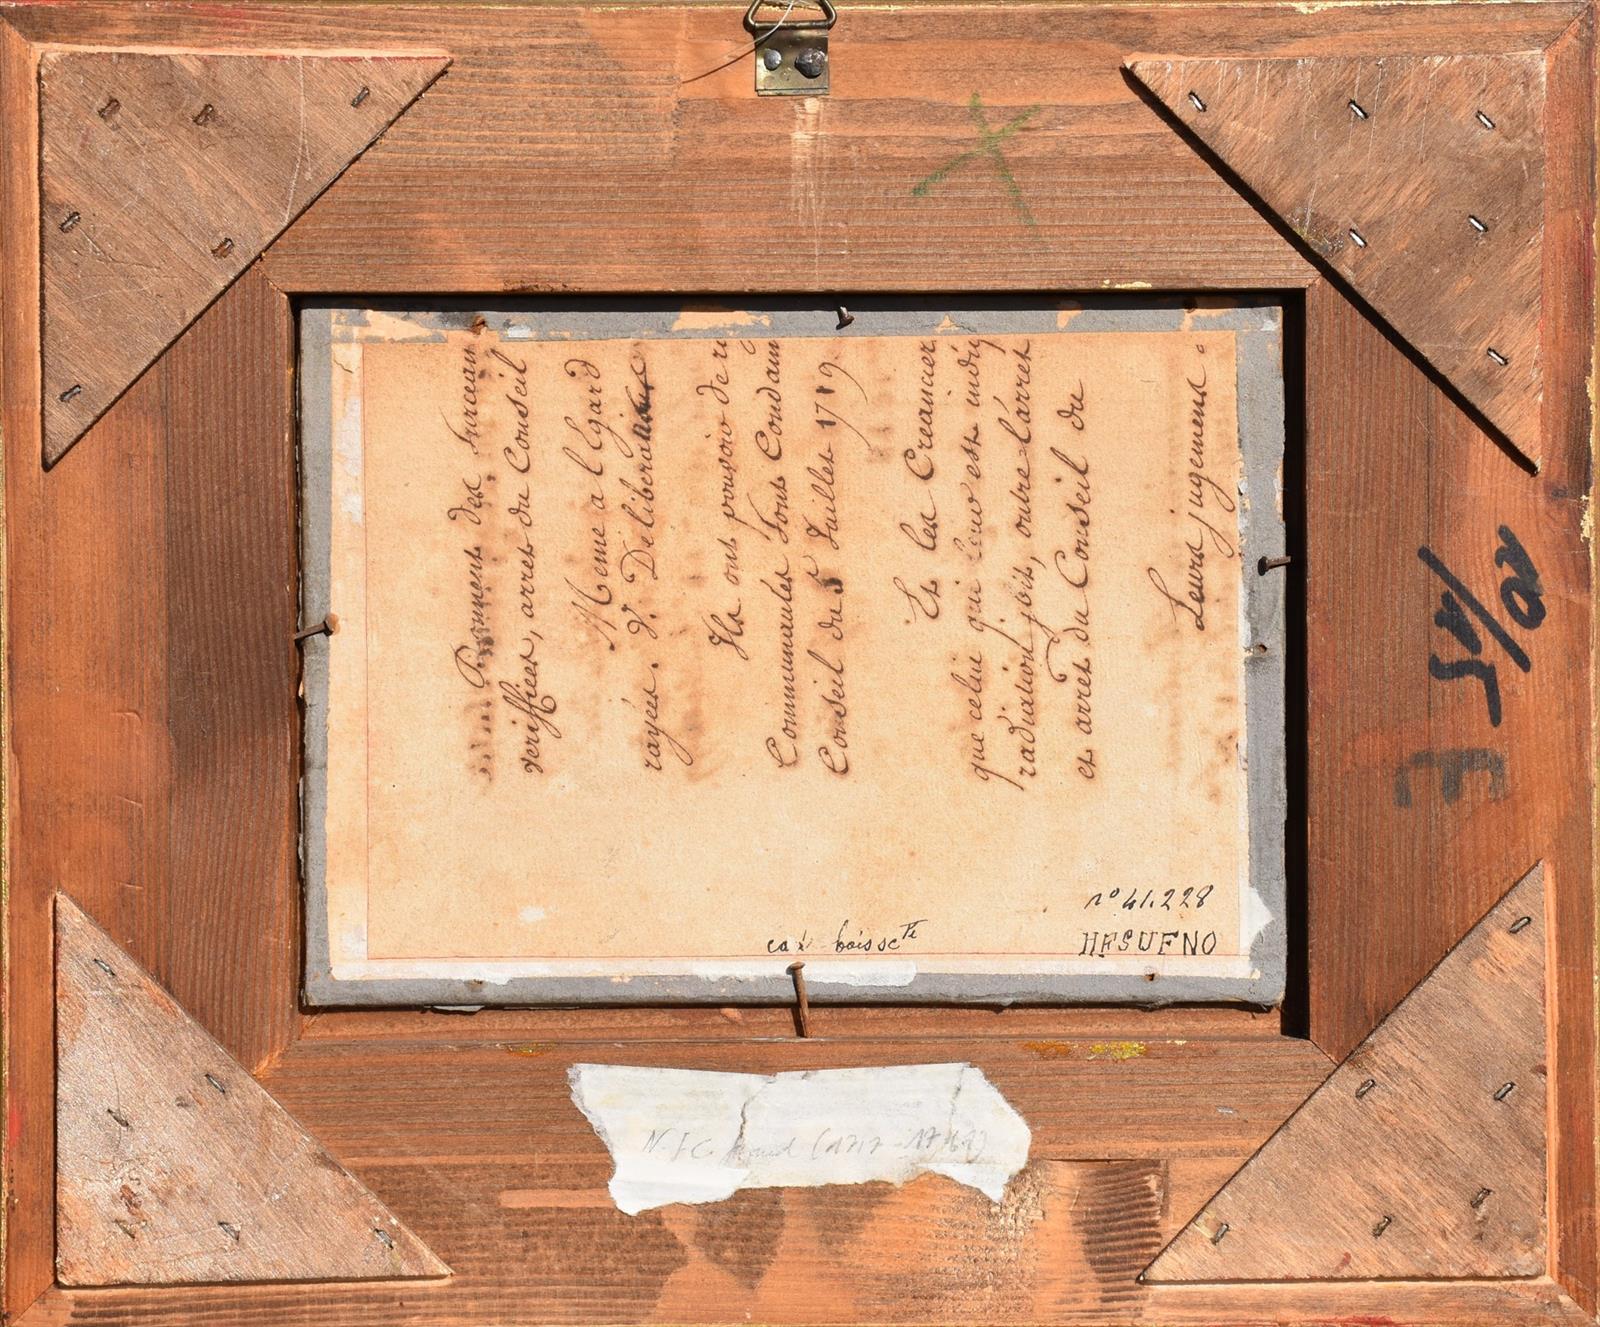 Payement des
veriffiees, arrest du Conseil
Meme a l'Egard
rayées. V. Deliberations
Ils ont pouvoir de
Communautes sont Condam
Conseil du 5 Juillet 1719
Et les Creancier
que celui qui leur est indiq
radiation soit, outre l'arrest
et arrest du Conseil du
Leurs jugemens.
n° 41.228
HFSUFNO
boisse
N.J.C.